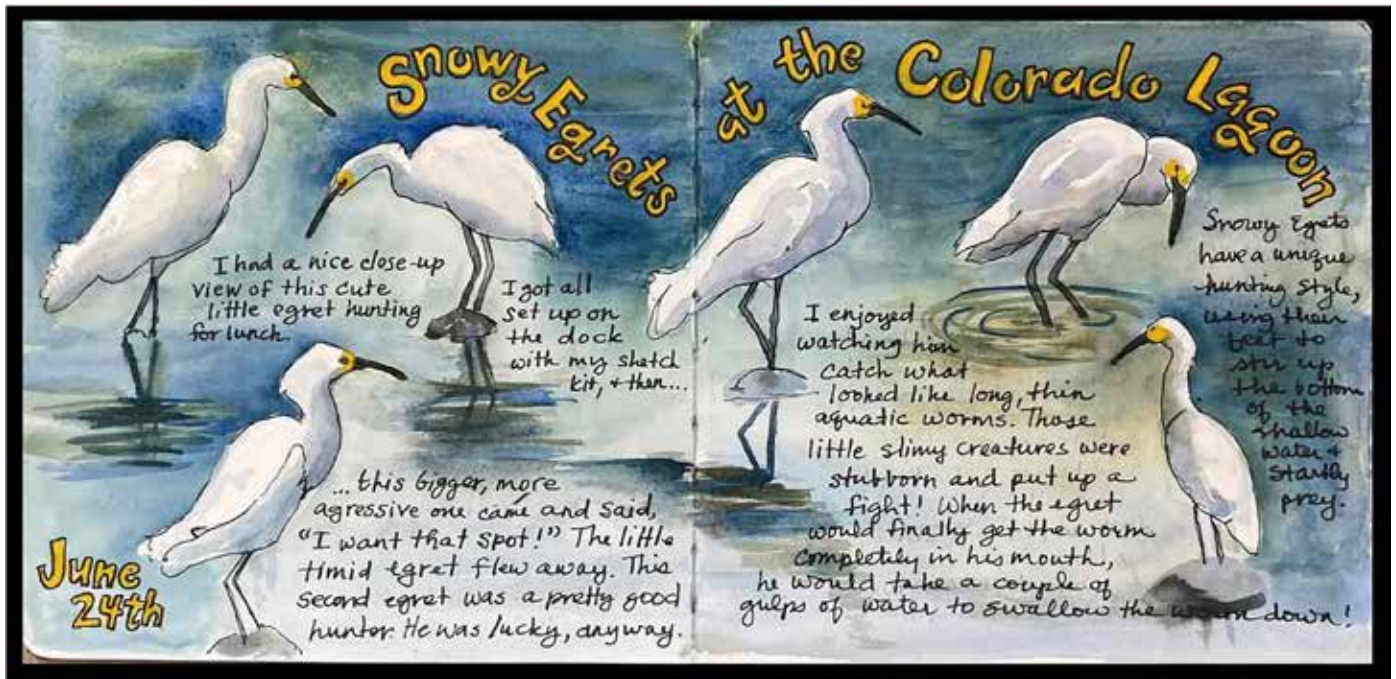 Snowy Egrets
at the Colorado Lagoon
I had a nice close-up
view of this cute
little egret hunting
for lunch.
I got all
set up on
the dock
with my sketch
kit, & then...
... this bigger, more
agressive one came and said,
"I want that spot!" The little
timid egret flew away. This
second egret was a pretty good
hunter. He was lucky, anyway.
June
24th
I enjoyed
watching him
catch what
looked like long, thin
aquatic worms. Those
little slimy creatures were
stubborn and put up a
fight! When the egret
would finally get the worm
completely in his mouth,
he would take a couple of
gulps of water to swallow the worm down!
Snowy Egrets
have a unique
hunting style,
using their
feet to
stir up
the bottom
of the
shallow
water &
startly
prey.